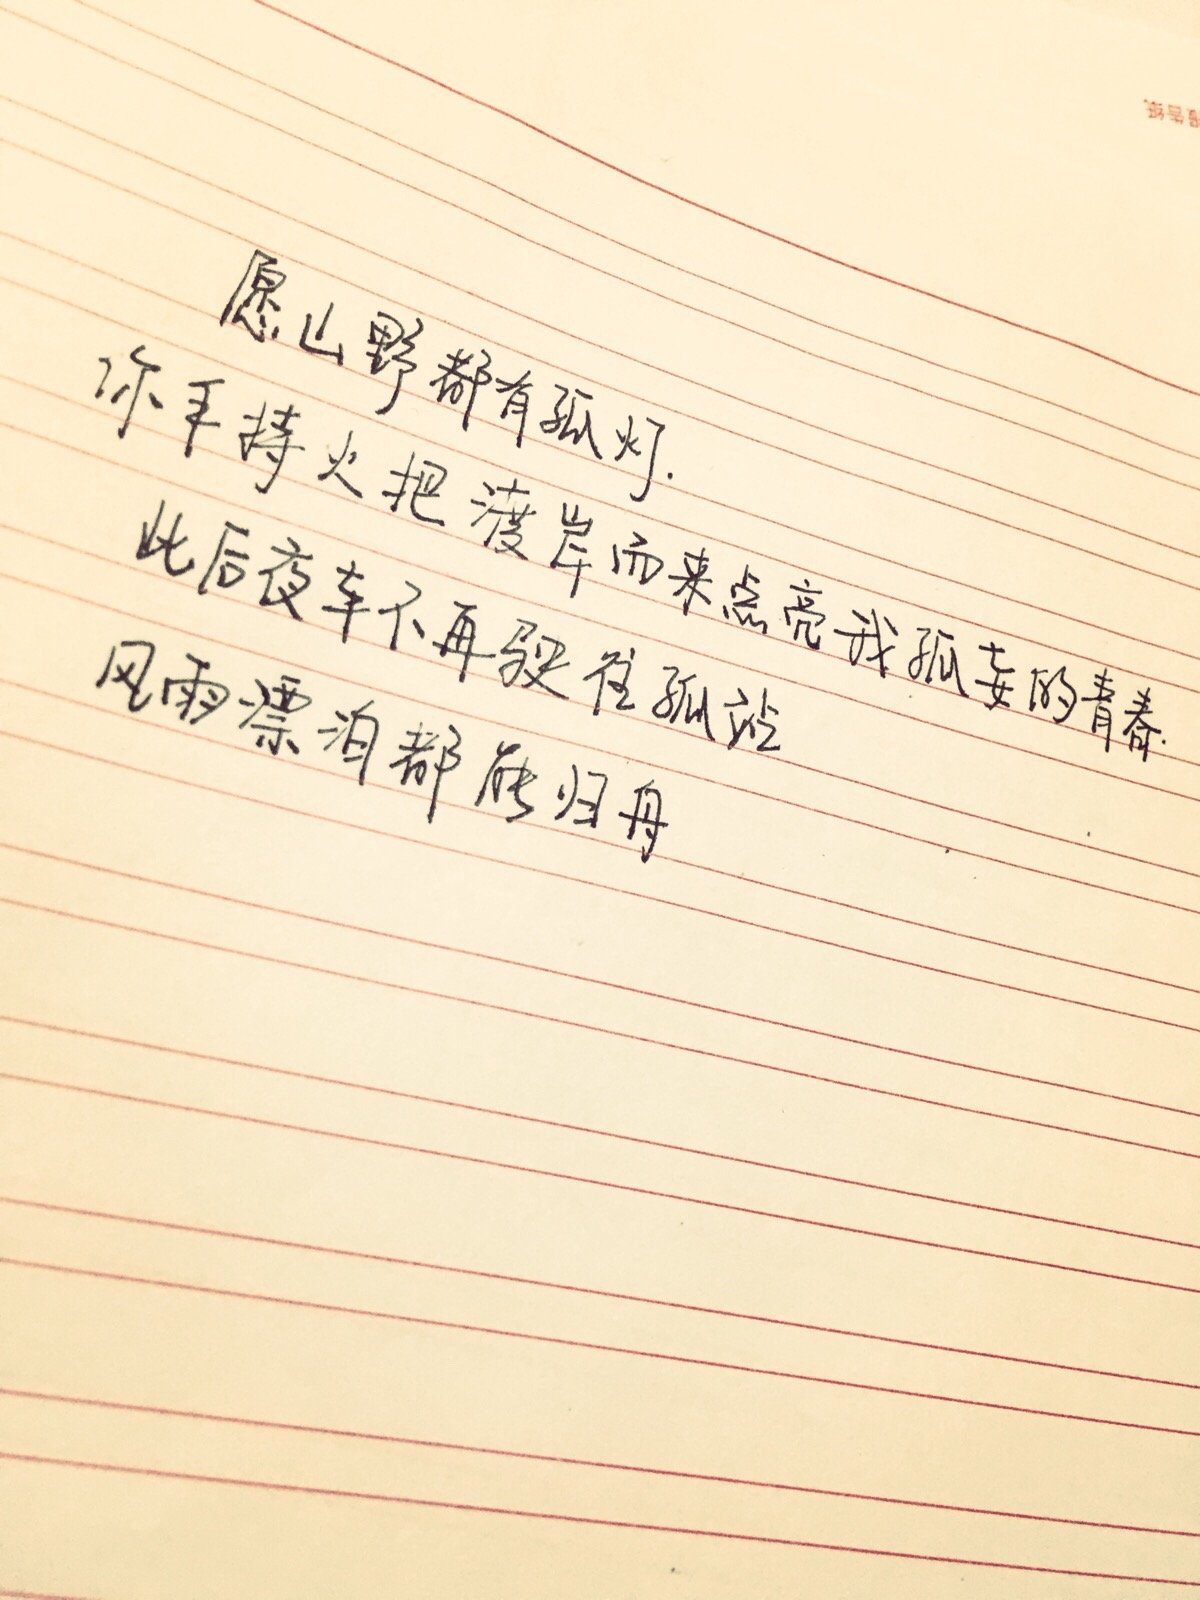 报告纸
愿山野都有孤灯.
你手持火把渡岸而来点亮我孤妄的青春.
此后夜车不再驶往孤站
风雨漂泊都能归舟